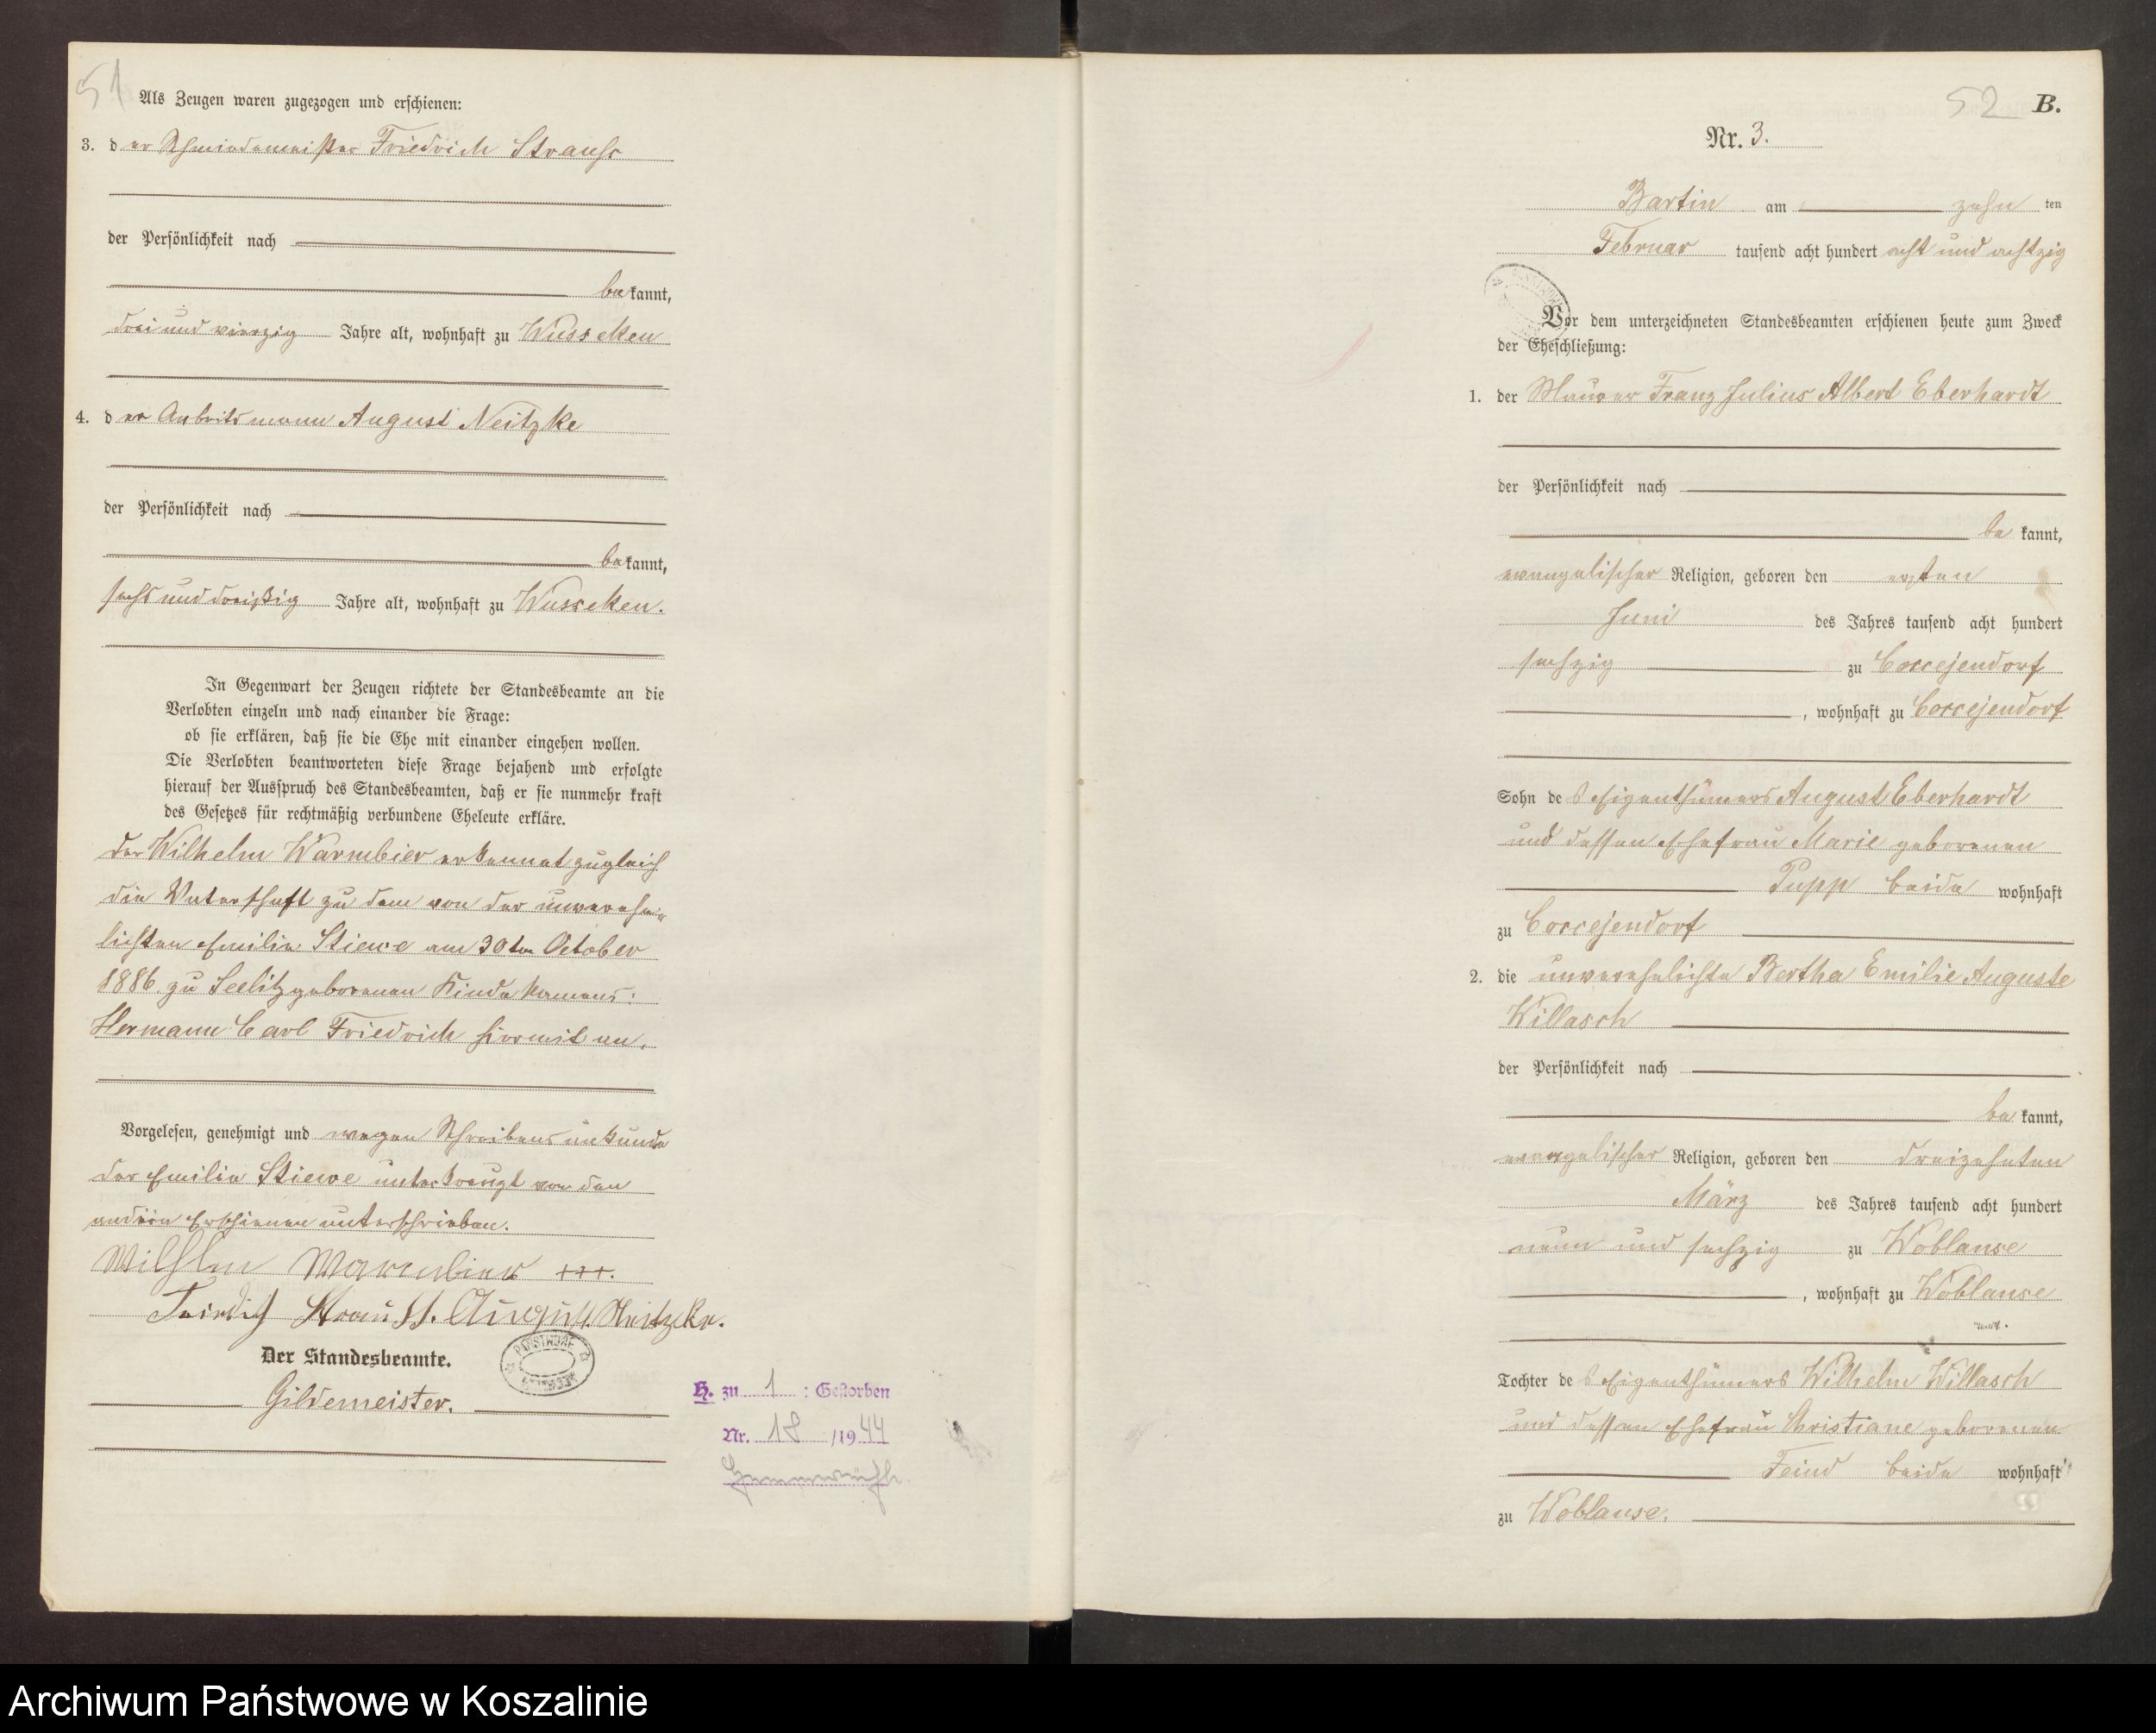 51
Als Zeugen waren zugezogen und erschienen:
3. der Schmiedemeister Friedrich Strauss
der Persönlichkeit nach
bekannt,
drei und vierzig Jahre alt, wohnhaft zu Wusseken
4. der Arbeitsmann August Neitzke
der Persönlichkeit nach
bekannt,
sechs und dreißig Jahre alt, wohnhaft zu Wusseken.
In Gegenwart der Zeugen richtete der Standesbeamte an die
Verlobten einzeln und nach einander die Frage:
ob sie erklären, daß sie die Ehe mit einander eingehen wollen.
Die Verlobten beantworteten diese Frage bejahend und erfolgte
hierauf der Ausspruch des Standesbeamten, daß er sie nunmehr kraft
des Gesetzes für rechtmäßig verbundene Eheleute erkläre.
Der Wilhelm Warmbier erkennet zugleich
die Vaterschaft zu dem von der unverehe-
lichten Emilie Stiewe am 30ten October
1886 zu Seelitz geborenen Kinde Namens:
Hermann Carl Friedrich hiermit an.
Vorgelesen, genehmigt und wegen Schreibensunkunde
der Emilie Stiewe unterkreuzt von den
andern Erschienen unterschrieben.
Wilhelm Warmbier +++.
Friedrich Strauss. August Neitzke.
Der Standesbeamte.
Gildemeister.
H. zu 1 : Gestorben
Nr. 18 /1944
52 B.
Nr. 3.
Bartin am zehn ten
Februar tausend acht hundert acht und achtzig
Vor dem unterzeichneten Standesbeamten erschienen heute zum Zweck
der Eheschließung:
1. der Maurer Franz Julius Albert Eberhardt
der Persönlichkeit nach
be kannt,
evangelischer Religion, geboren den ersten
Juni des Jahres tausend acht hundert
sechzig zu Coccejendorf
, wohnhaft zu Coccejendorf
Sohn des Eigenthümers August Eberhardt
und dessen Ehefrau Marie geborenen
Pupp beide wohnhaft
zu Coccejendorf
2. die unverehelichte Bertha Emilie Auguste
Willasch
der Persönlichkeit nach
be kannt,
evangelischer Religion, geboren den dreizehnten
März des Jahres tausend acht hundert
neun und sechzig zu Woblanse
, wohnhaft zu Woblanse
Tochter des Eigenthümers Wilhelm Willasch
und dessen Ehefrau Christiane geborenen
Feind beide wohnhaft
zu Woblanse.
Archiwum Państwowe w Koszalinie